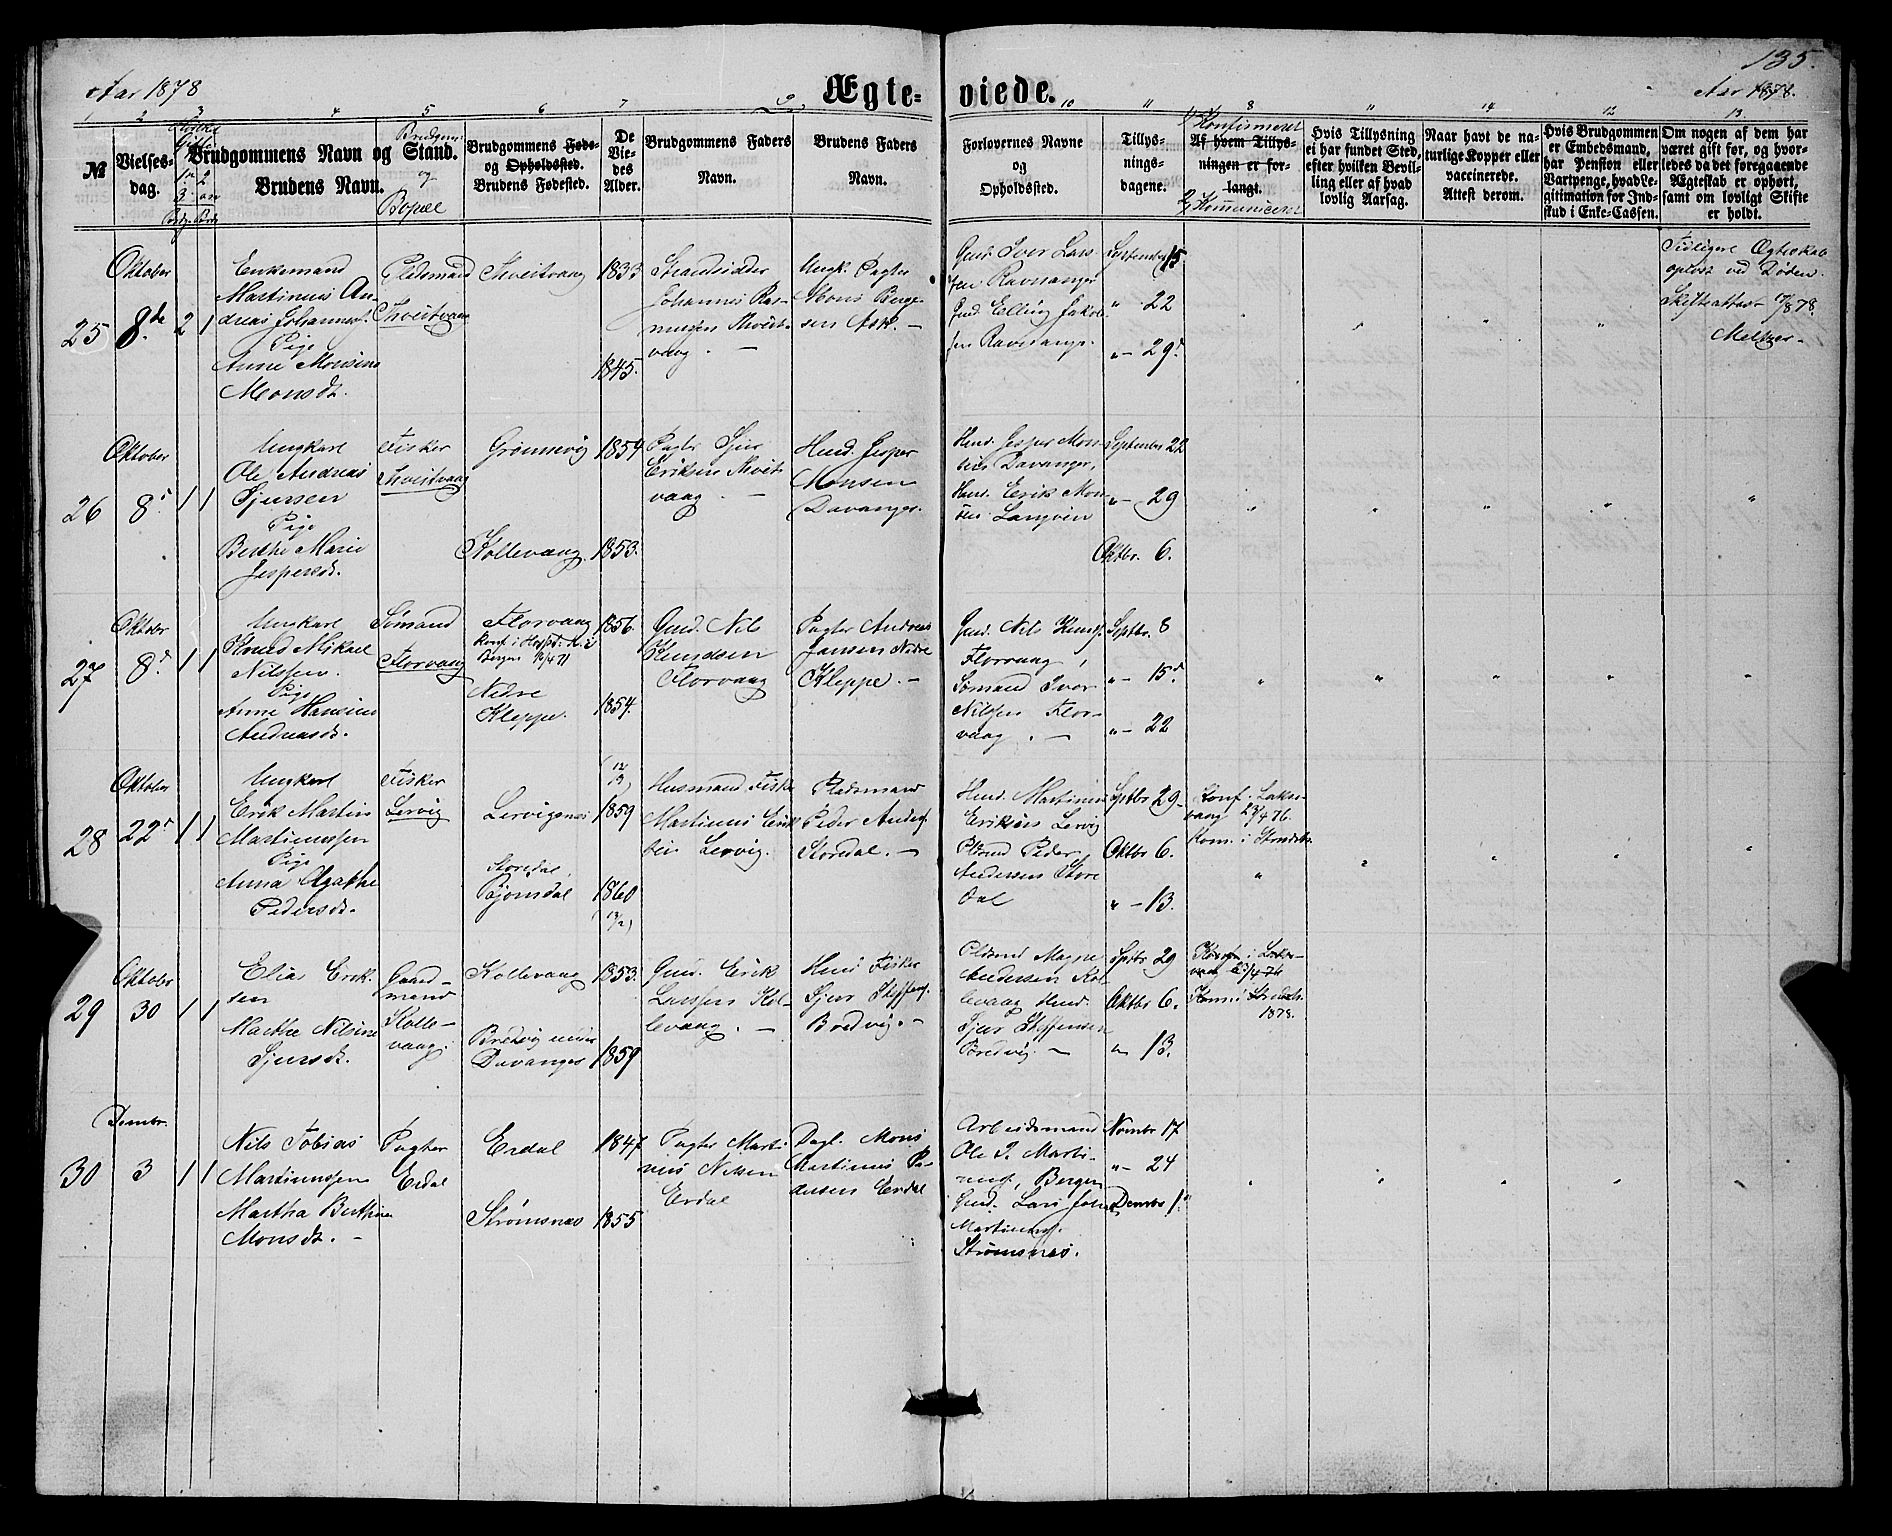 135.
Aar 1878
Ægteviede.
Aar 1878.
2 3 4 5 6 7 9 10 " 8 " 14 12 13
№
Vielsesdag.
Brudgommens Navn og Stand.
Brudens Navn.
Brudgoms
og
Bopæl
Brudgommens Føde-
og Opholdssted.
Brudens Fødested.
De
Vie-
des
Alder.
Brudgommens Faders
Navn.
Brudens Faders
Navn.
Forlovernes Navne
og
Opholdssted.
Tillys-
nings-
dagene.
1/ Konfirmeret
Af hvem Tillys-
ningen er for-
langt.
2/ Kommuniceret
Hvis Tillysning
ei har fundet Sted,
efter hvilken Bevil-
ling eller af hvad
lovlig Aarsag.
Naar havt de na-
turlige Kopper eller
vaccinerede.
Attest derom.
Hvis Brudgommen
er Embedsmand,
har Pension eller
Vartpenge, hvad Le-
gitimation for Ind-
skud i Enke-Cassen.
Om nogen af dem har
været gift for, og hvor-
ledes da det foregaaende
Ægteskab er ophørt,
samt om lovligt Skifte
er holdt.
25
Oktober
8de
2 1
Enkemand
Martinus An-
dreas Johannes.
Pige
Anne Monsine
Monsdt.
Pladsmand
Tveitvaag
Tveitvaag
1833
1845.
Strandsidder
Johannes Ras-
mussen Tveit-
vaag. —
Ungk. Pagter
Mons Børge-
sen Ask. —
Gmd. Iver Lars-
sen Ravnanger
Gmd. Elling Jakob-
sen Ravnanger
September 15.
" 22
" — 29.
Tidligere Ægteskab
opløst ved Døden.
Skifteattest 7/8 78.
Meltzer.
26
Oktober
8.
1 1
Ungkarl
Ole Andreas
Sjursen
Pige
Berthe Marie
Jespersdt.
Fisker
Tveitvaag
Grønnevig
Kollevaag.
1854
1853.
Pagter Sjur
Eriksen Tveit-
vaag. —
Hmd. Jesper
Monsen
Davanger.
Hmd. Jesper Mon-
sen Davanger,
Hmd. Erik Mon-
sen Langøen
September 22
" — 29
Oktbr. 6.
27
Oktober
8.
1 1
Ungkarl
Knud Mikael
Nilssen.
Pige
Anne Hansine
Andreasdt.
Sømand
Florvaag
Florvaag
Konf. i Hospit. K. i
Bergen 16/4 71
Nedre
Kleppe.
1856.
1854.
Gmd. Nils
Knudsen
Florvaag
Pagter Andreas
Jansen Nedre
Kleppe. —
Gmd. Nils Knuds.
Florvaag,
Sømand Iver
Nilsen Flor-
vaag. —
Septbr. 8
" — 15.
" — 22
28
Oktober
22.
1 1
Ungkarl
Erik Martin
Martinussen
Pige
Anna Agathe
Pedersdt.
Fisker
Lervig
Lervignes
Storedal,
Bjørnsdal
1859
1860
Husmand Fisker
Martinus Erik-
sen Lervig.
Pladsmand
Peder Anders.
Storedal. —
Hmd. Martinus
Eriksen Lervig
Pldsmd Peder
Andersen Store
Dal
Septbr 29
Oktbr 6.
" — 13.
Konf. i Laks-
vaag 23/4 76.
Kom. i Strudsh.
29
Oktober
30
1 1
Elias Erik-
sen
Marthe Nilsine
Sjursdt.
Gaard-
mand
Kolle-
vaag.
Kollevaag
Bredvig under
Davanger
1853.
1859
Gmd. Erik
Larssen Kol-
levaag. —
Hmd Fisker
Sjur Steffens.
Bredvig. —
Pldsmd Magne
Andersen Kol-
levaag Hmd.
Sjur Steffensen
Bredvig. —
Septbr 29
Oktbr 6.
" 13.
Konf. i Laks-
vaag 23/4 74
Kom. i Strudsh.
1878.
30
Dcmbr.
3
1 1
Nils Tobias
Martinussen
Martha Berthine
Monsdt. —
Pagter
Erdal
Erdal
Strømsnes
1847
1855
Pagter Marti-
nus Nilsen
Erdal
Dagl. Mons
Martinus Pe-
dersen Erdal
Arbeidsmand
Ole J. Marti-
nus., Bergen
Gmd. Lars Johan
Martinus.
Strømsnes.
Nvmbr 17
" — 24
Dcmbr 1.